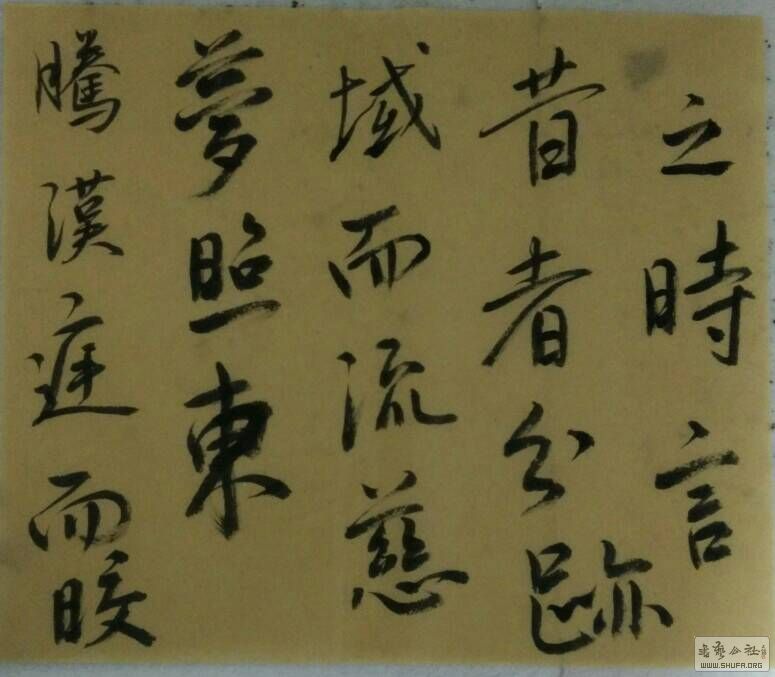 騰漢庭而皎
夢照東
域而流慈
昔者分跡
之時言
書藝公社
WWW.SHUFA.ORG